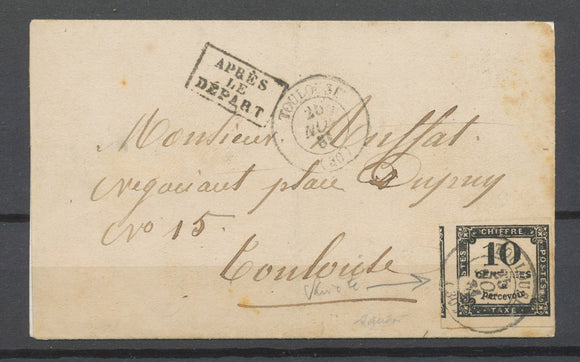 APRÈS
LE
DÉPART
TOULOUSE
(30)
Monsieur
Negociant place Dupuy
No 15
Toulouse
CHIFFRE
POSTES
10
CENTIMES
à
percevoir
TAXE